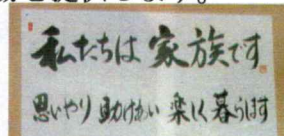 私たちは家族です
思いやり 助けあい 楽しく暮らします